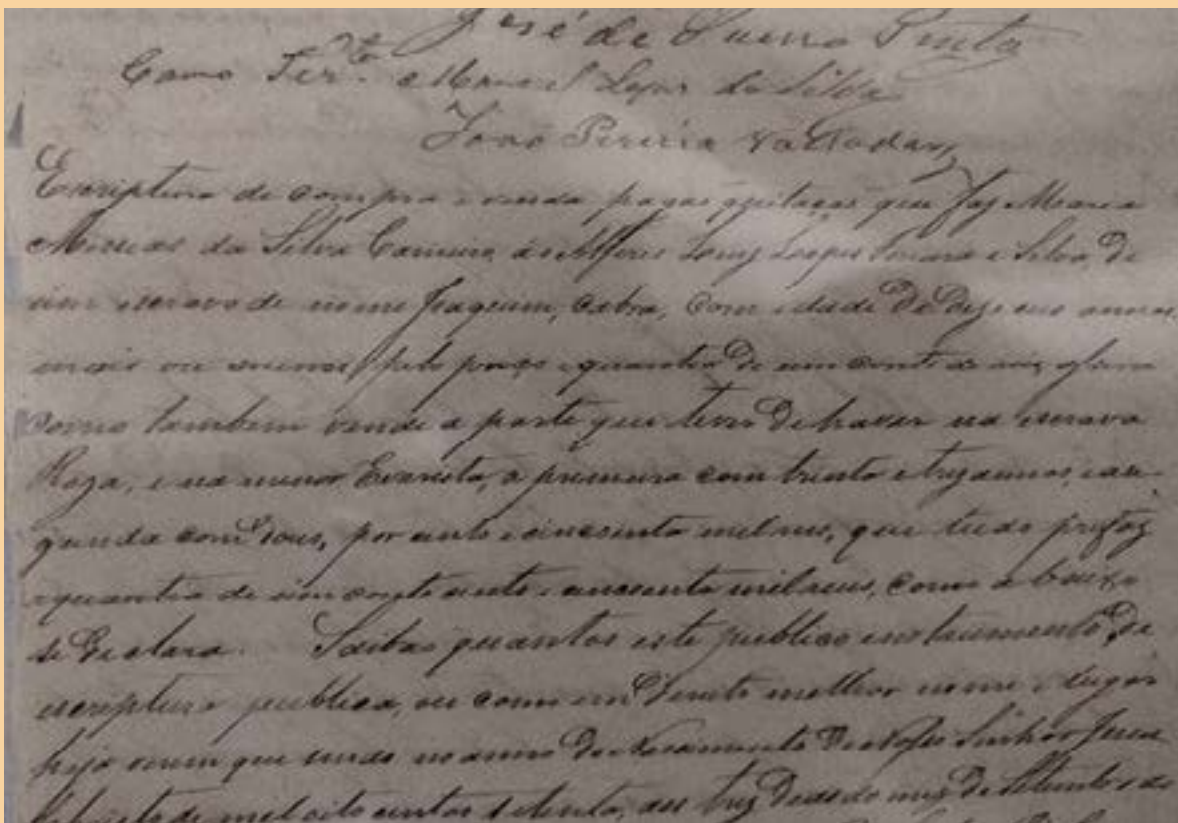 José de Pinto
Como Ter.to Manoel Lopes da Silva
João Pereira Valladares
Escriptura de compra e venda pagas quitação que faz Maria
da Silva Carneiro ao Alferes Luiz e Silva, de
um escravo de nome Joaquim, cabra, com idade de deze seis annos,
mais ou menos, pelo preço e quantia de um conto de reis,
como tambem vende a parte que tem de haver na escrava
Roza, e na menor Evarista, a primeira com trinta e tres annos, e a se-
gunda com dous, por cento e cincoenta mil reis, que tudo prefaz
a quantia de um conto cento e cincoenta mil reis, como abaixo
se declara. Saibão quantos este publico instrumento de
escriptura publica, ou como em direito melhor nome e lugar
haja virem que sendo no anno do Nascimento de Nosso Senhor Jesus
Christo de mil oito centos e setenta, aos tres dias do mez de Setembro do